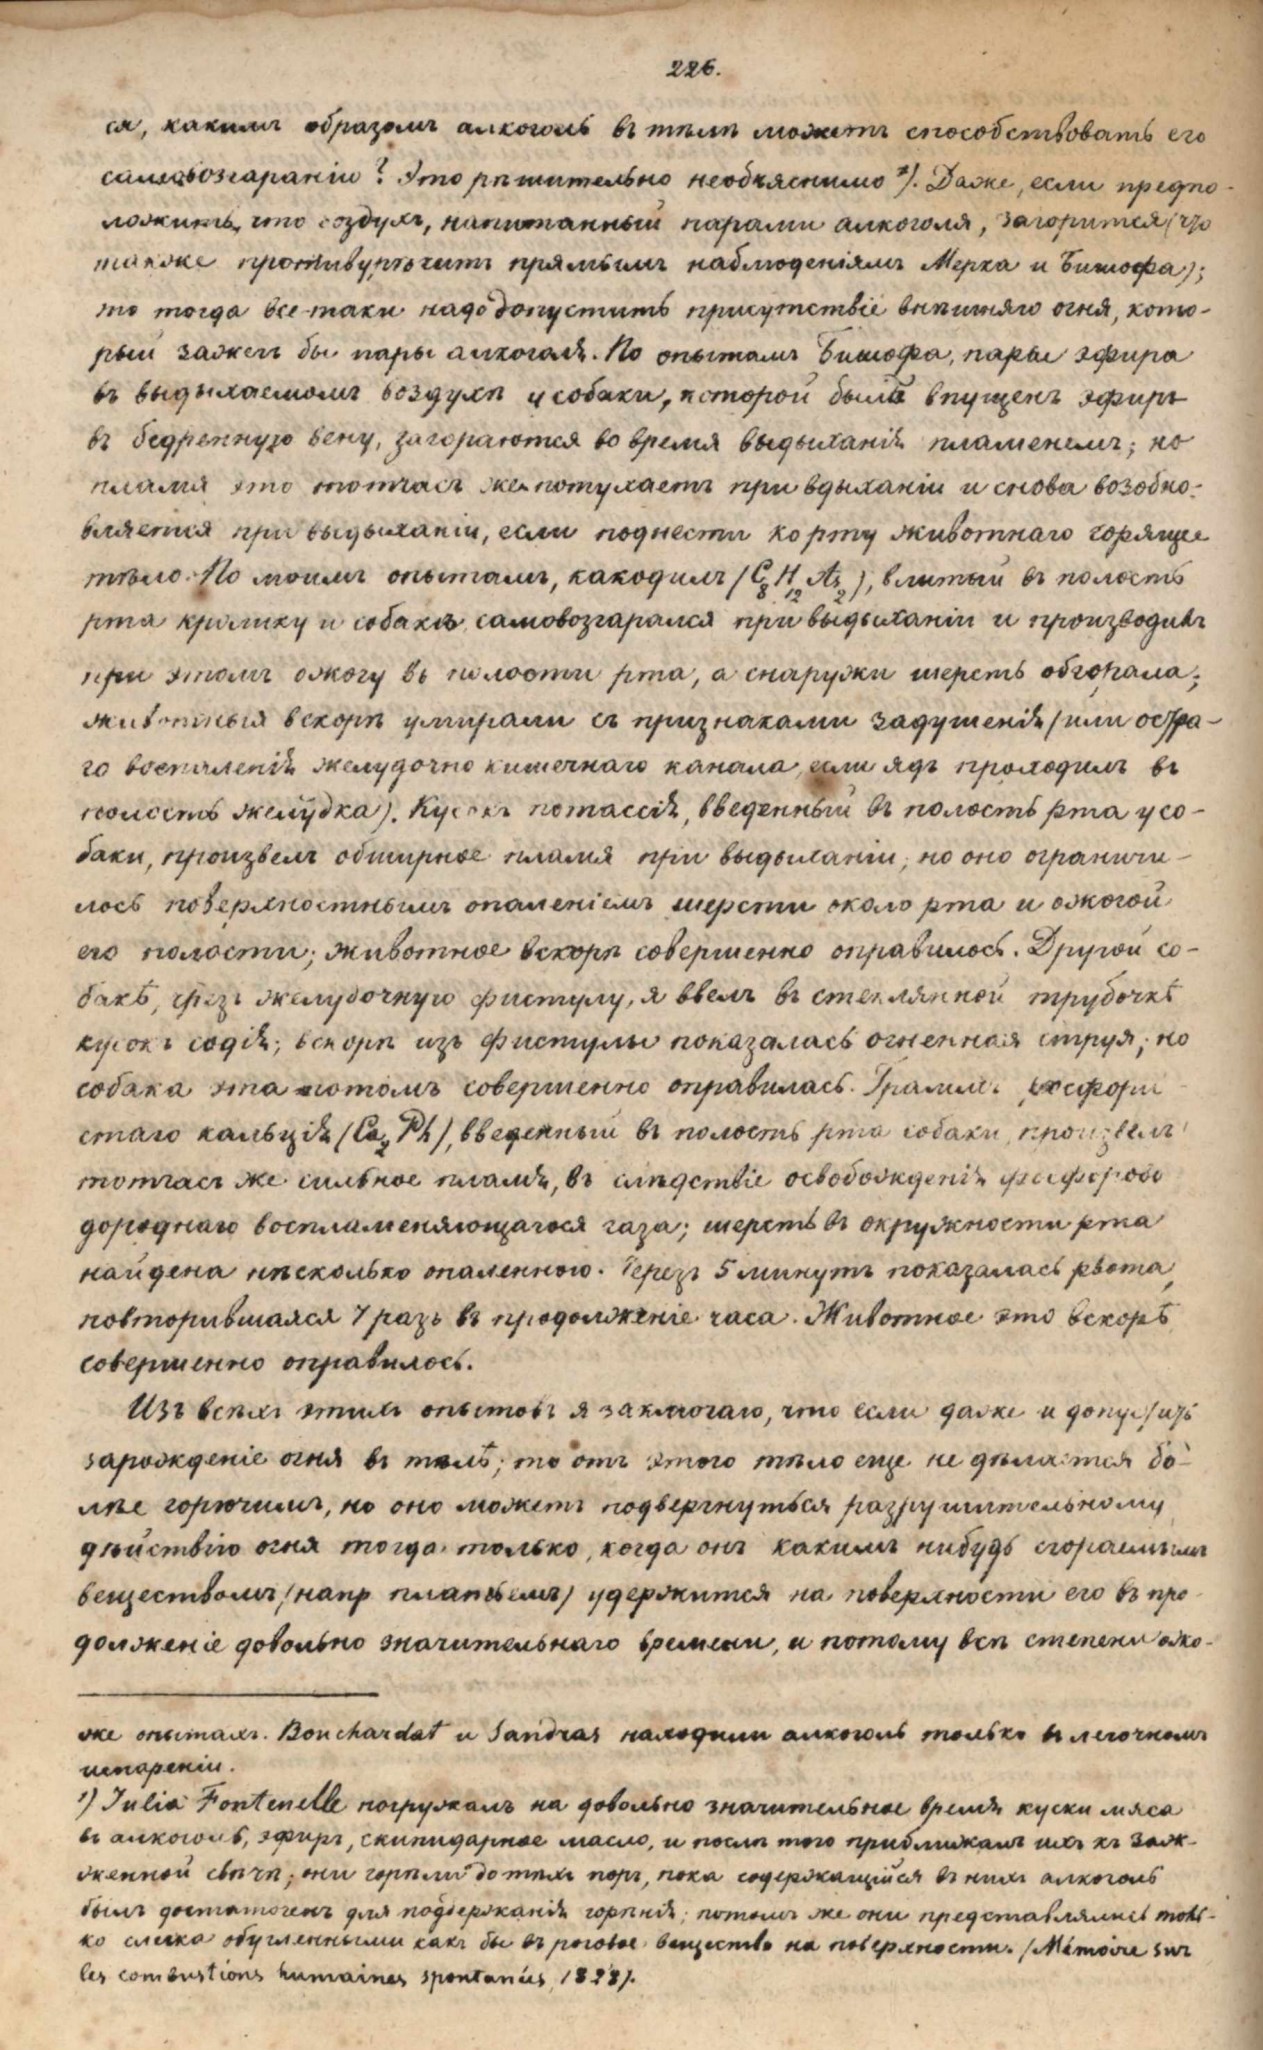 226.
ся, какимъ образомъ алкоголь въ тѣлѣ можетъ способствовать его
самовозгаранію? Это рѣшительно необъяснимо ¹). Даже, если предпо-
ложить, что воздухъ, напитанный парами алкоголя, загорится (что
также противурѣчитъ прямымъ наблюденіямъ Мерка и Бишофа);
то тогда все-таки надо допустить присутствіе внѣшняго огня, кото-
рый зажегъ бы пары алкоголя. По опытамъ Бишофа, пары эфира
въ выдыхаемомъ воздухѣ у собаки, которой былъ впущенъ эфиръ
въ бедренную вену, загораются во время выдыханія пламенемъ; но
пламя это тотчасъ же потухаетъ при вдыханіи и снова возобно-
вляется при выдыханіи, если поднести ко рту животнаго горящее
тѣло. По моимъ опытамъ, какодилъ (C8 H12 As2), влитый въ полость
рта кролику и собакѣ, самовозгарался при выдыханіи и производилъ
при этомъ ожогу въ полости рта, а снаружи шерсть обгорала;
животныя вскорѣ умирали съ признаками задушенія (или остра-
го воспаленія желудочно кишечнаго канала, если ядъ проходилъ въ
полость желудка). Кусокъ потассія, введенный въ полость рта у со-
баки, произвелъ обширное пламя при выдыханіи; но оно ограничи-
лось поверхностнымъ опаленіемъ шерсти около рта и ожогой
его полости; животное вскорѣ совершенно оправилось. Другой со-
бакѣ, чрезъ желудочную фистулу, я ввелъ въ стеклянной трубочкѣ
кусокъ содія; вскорѣ изъ фистулы показалась огненная струя; но
собака эта потомъ совершенно оправилась. Граммъ фосфори-
стаго кальція (Ca2 Ph), введенный въ полость рта собаки, произвелъ
тотчасъ же сильное пламя, въ слѣдствіе освобожденія фосфорово
дороднаго воспламеняющагося газа; шерсть въ окружности рта
найдена нѣсколько опаленною. Черезъ 5 минутъ показалась рвота,
повторившаяся 7 разъ въ продолженіе часа. Животное это вскорѣ
совершенно оправилось.
Изъ всѣхъ этихъ опытовъ я заключаю, что если даже и допустить
зарожденіе огня въ тѣлѣ; то отъ этого тѣло еще не дѣлается бо-
лѣе горючимъ, но оно можетъ подвергнуться разрушительному
дѣйствію огня тогда только, когда онъ какимъ нибудь сгораемымъ
веществомъ (напр платьемъ) удержится на поверхности его въ про-
долженіе довольно значительнаго времени, и потому всѣ степени ожо-
же опытахъ. Bouchardat и Sandras находили алкоголь только въ легочномъ
испареніи.
¹) Julia Fontenelle погружалъ на довольно значительное время куски мяса
въ алкоголь, эфиръ, скипидарное масло, и послѣ того приближалъ ихъ къ заж-
женной свѣчѣ; они горѣли до тѣхъ поръ, пока содержащійся въ нихъ алкоголь
былъ достаточенъ для поддержанія горѣнія; потомъ же они представлялись толь-
ко слегка обугленными какъ бы въ роговое вещество на поверхности. (Mémoire sur
les combustions humaines spontanées, 1828).